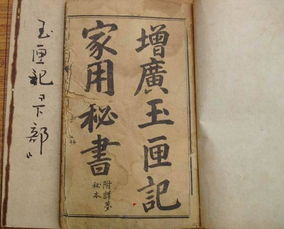 增廣玉匣記
家用秘書
附詳夢
秘本
玉匣記 下部